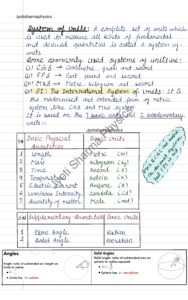 Jyotisharmaphysics
System of Units: A complete set of units which
is used to measure all kinds of fundamental
and derived quantities is called a system of
units.
Some commonly used systems of units are:
(i) CGS → Centimetre, gram and second
(ii) FPS → foot pound and second
(iii) MKS → Metre, kilogram and second
(iv) SI: The International System of Units: It is
the modernised and extended form of metric
system like CGS and MKS system
It is based on the 7 basic and 2 Supplementary
units:-
S.N Basic Physical Quantities Basic Units
1 Length Metre (m)
2 Mass Kilogram (kg)
3 Time Second (s)
4 Temperature Kelvin (K)
5 Electric Current Ampere (A)
6 Luminous Intensity Candela (cd)
7 Quantity of matter Mole (mol)
S.N Supplementary Quantities Basic Units
1 Plane Angle Radian
2 Solid Angle Steradian
Angles
Angle: ratio of subtended arc length on circle to radius
Circle has 2π radians
Solid Angles
Solid angle: ratio of subtended area on sphere to radius squared
Sphere has 4π steradians